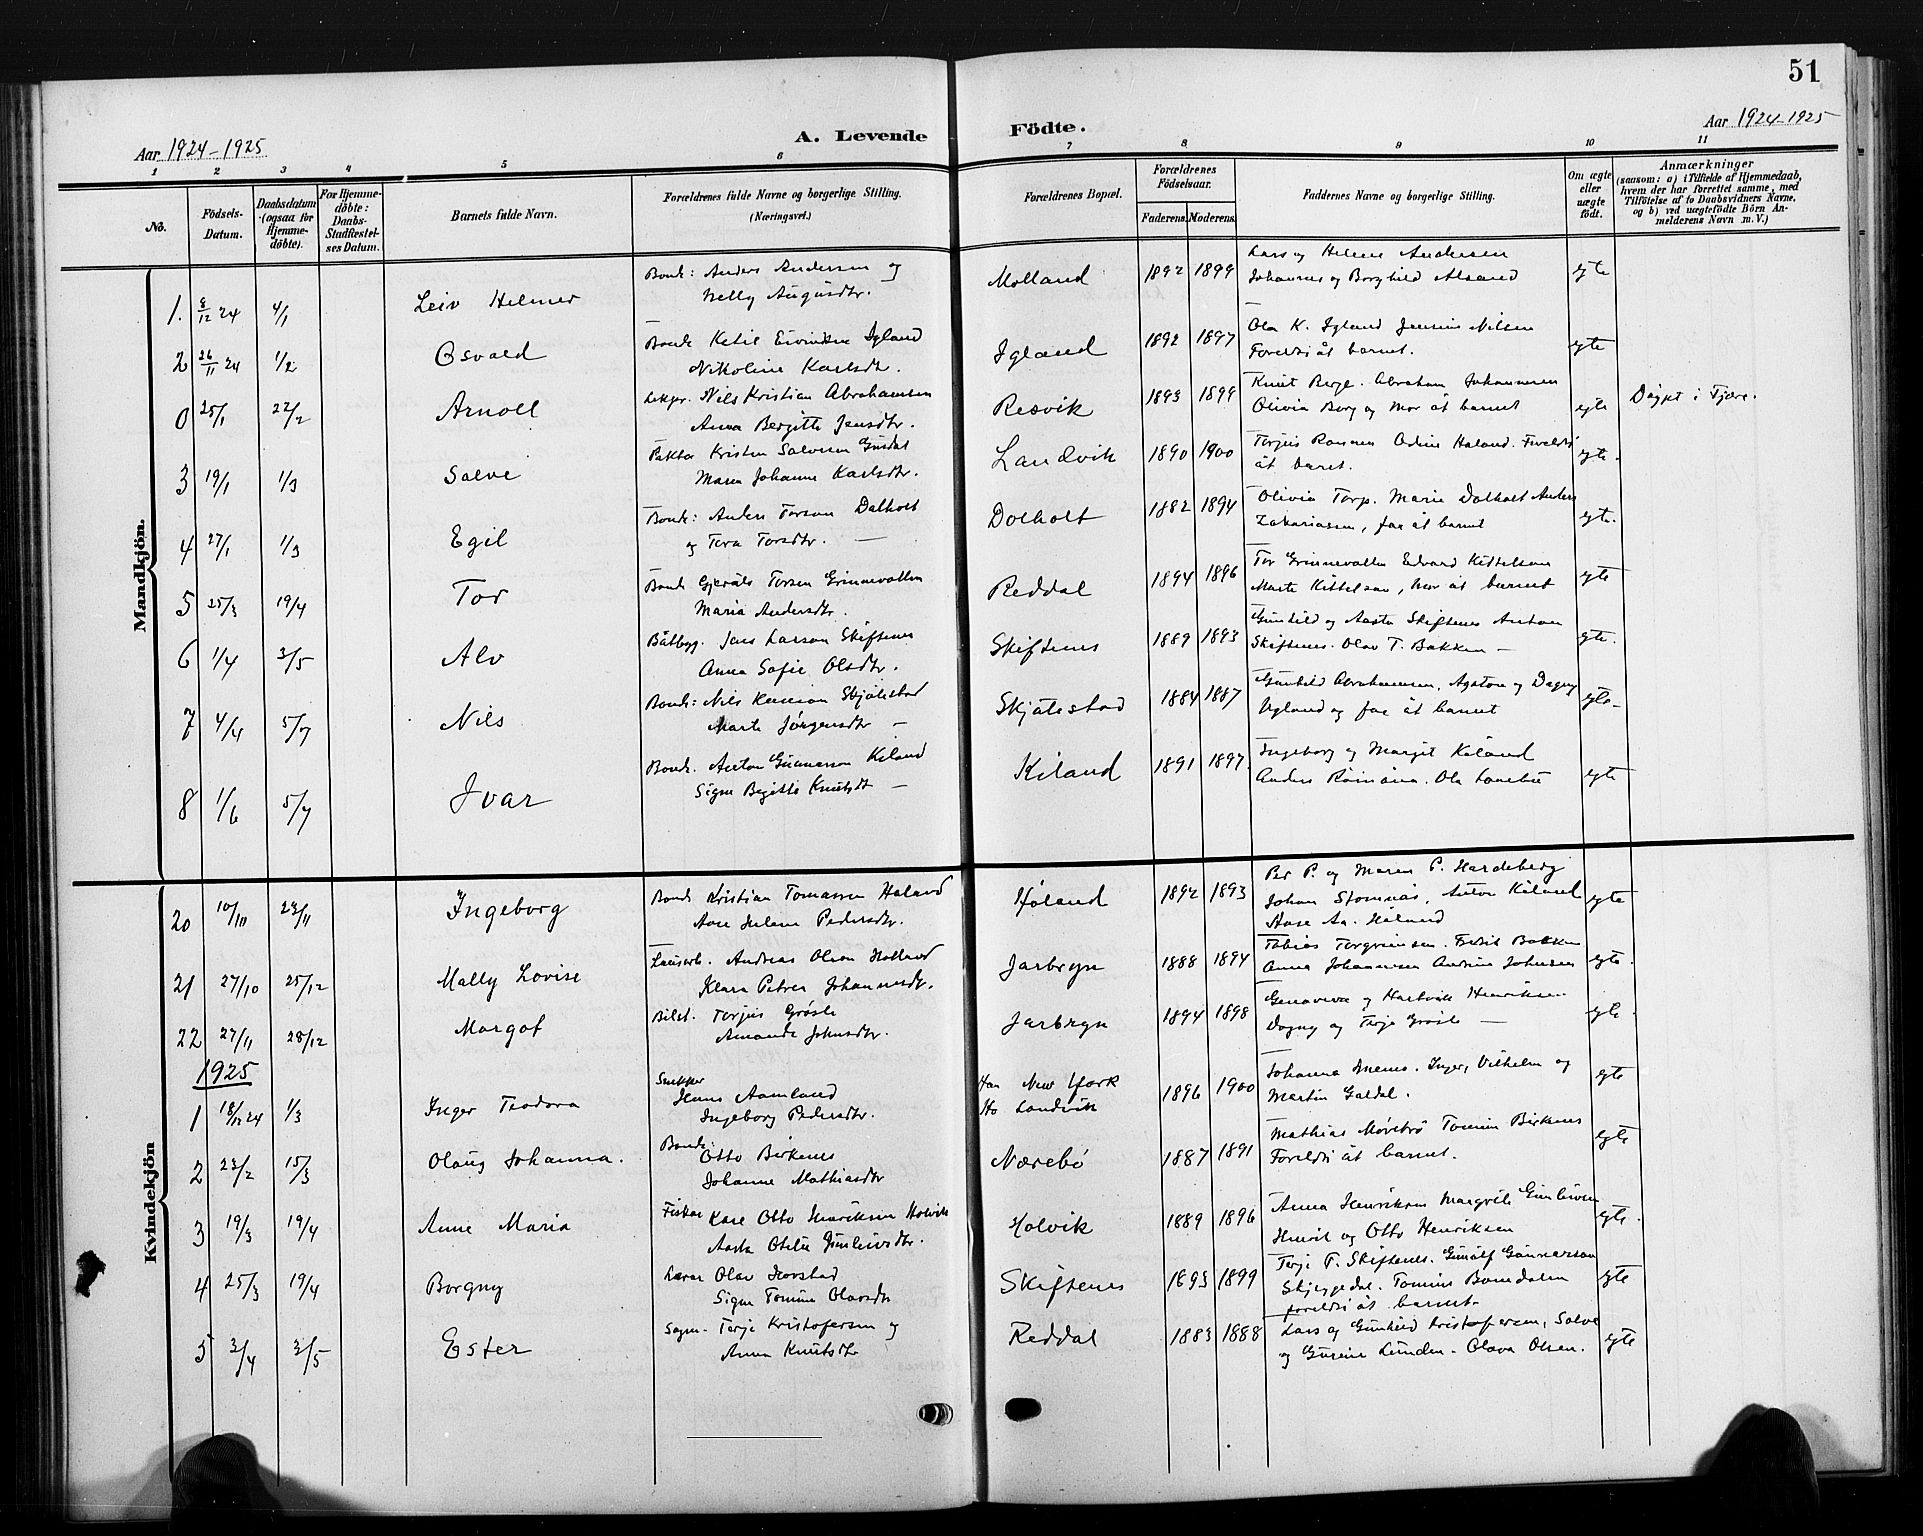 51
Aar 1924-1925
A. Levende Födte.
Aar 1924-1925
1 2 3 4 5 6 7 8 9 10 11
No.
Födsels-Datum.
Daabsdatum (ogsaa for Hjemmedöbte).
For Hjemmedöbte: Daabs-Stadfæstelses Datum.
Barnets fulde Navn.
Forældrenes fulde Navne og borgerlige Stilling. (Næringsvei.)
Forældrenes Bopæl.
Forældrenes Födselsaar.
Faderens. Moderens.
Faddernes Navne og borgerlige Stilling.
Om ægte eller uægte födt.
Anmærkninger (saasom: a) i Tilfælde af Hjemmedaab, hvem der har forrettet samme, med Tilföielse af to Daabsvidners Navne, og b) ved uægtefödte Börn Anmelderens Navn m. V.)
Mandkjön.
1. 8/12 24 4/1 Leiv Helmer
Bonde: Anders Andersen og
Nelly Augustdtr.
Molland 1892 1899
Lars og Helene Andersen
Johannes og Borghild Alsand
egte
2 26/11 24 1/2 Osvald
Bonde Ketil Eivindsen Igland
Nikoline Karlsdtr.
Igland 1892 1897
Ola K. Igland Jensine Nilsen
Foreldri åt barnet.
egte
0 25/1 22/2 Arnolt
Nils Kristian Abrahamsen
Anna Bergitte Jensdtr.
Resvik 1893 1899
Knut Berge. Abraham Johannesen
Olivia Berg og Mor åt barnet
egte
Døypt i Fjære.
3 19/1 1/3 Salve
Kristen Salvesen
Maren Johanne Karlsdtr.
Landvik 1890 1900
Haland. Foreldri
åt barnet.
egte.
4 27/1 1/3 Egil
Bonde: Anders Torson Dalholt
og Tora Torsdtr. —
Dolholt 1882 1894
Olivia Torp. Marie Dolholt Anders
Zakariassen, far åt barnet
egte.
5 25/3 19/4 Tor
Bonde Gjerulf Torsen Grinnevallen
Maria Andersdtr.
Reddal 1894 1896
Tor Grinnevallen Edvard Kittelson
Marte Kittelsen, mor åt barnet
egte
6 1/4 3/5 Alv
Båtbyg. Jens Larson Skiftenes
Anna Sofie Olsdtr.
Skiftenes 1889 1893
Gunhild og Aasta Skiftenes Anton
Skiftenes. Olav T. Bakken —
egte.
7 4/4 5/7 Nils
Bonde: Nils Skjålestad
Marte Jørgensdtr —
Skjålestad 1884 1887
Gunhild Abrahamsen, og Dagny
Ugland og far åt barnet
egte
8 1/6 5/7 Ivar
Bonde. Anton Gunnarson Kiland
Signe Birgitte Knutsdtr —
Kiland 1891 1897.
Ingeborg og Margit Kiland
Anders
egte
Kvindekjön
20 10/10 23/11 Ingeborg
Bonde Kristian Tomassen Haland
Aase Helene Pedersdtr.
Høland 1892 1893
Per P. og Maren P. Hardeberg
Johan Anton Kiland
Aase Aa. Håland
egte
21 27/10 25/12 Mally Lovise
Andreas Olson Holland
Klara Petrea Johannesdtr.
Jarbryn 1888 1894
Tobias Torgrimsen. Bakken
Anna Johannesen Andrine Johnsen
egte.
22 27/11 28/12 Margot
Torjus Grøsle
Amanda Johnsdtr.
Jarbryn 1894 1898
Genoveva og Hartvik Henriksen
Dagny og Terje Grøsle —
egte
1925
1 18/12 24 1/3 Inger Teodora
Snekker
Hans Aamland
Ingeborg Pedersdtr.
Han New York
Ho Landvik
1896 1900
Johanna Inger, Vilhelm og
Martin Galdal.
egte
2 23/2 15/3 Olaug Johanna.
Bonde:
Otto Birkenes
Johanne Mathiasdtr
Nærebø 1887 1891
Mathias Tomine Birkenes
Foreldri åt barnet.
egte
3 19/3 19/4 Anne Maria
Fiskar Karl Otto Henriksen Holvik
Aasta Otelie Gunleivsdtr.
Holvik 1889 1896
Anna Henriksen Margrete Gunleivsen
Henrik og Otto Henriksen
egte.
4 25/3 19/4 Borgny
Lærar Olav Hovstad
Signe Tomine Olavsdtr
Skiftenes 1893 1899
Terje T. Skiftenes. Gunulf Gunnarson
Skjeggedal. Tomine Bomdalen
foreldri åt barnet.
egte
5 3/4 3/5 Ester
Terje Kristofersen og
Anna Knutsdtr
Reddal 1883 1888
Lars og Gunhild Kristofersen, Salve
og Gurine Lunden. Olava Olsen.
egte